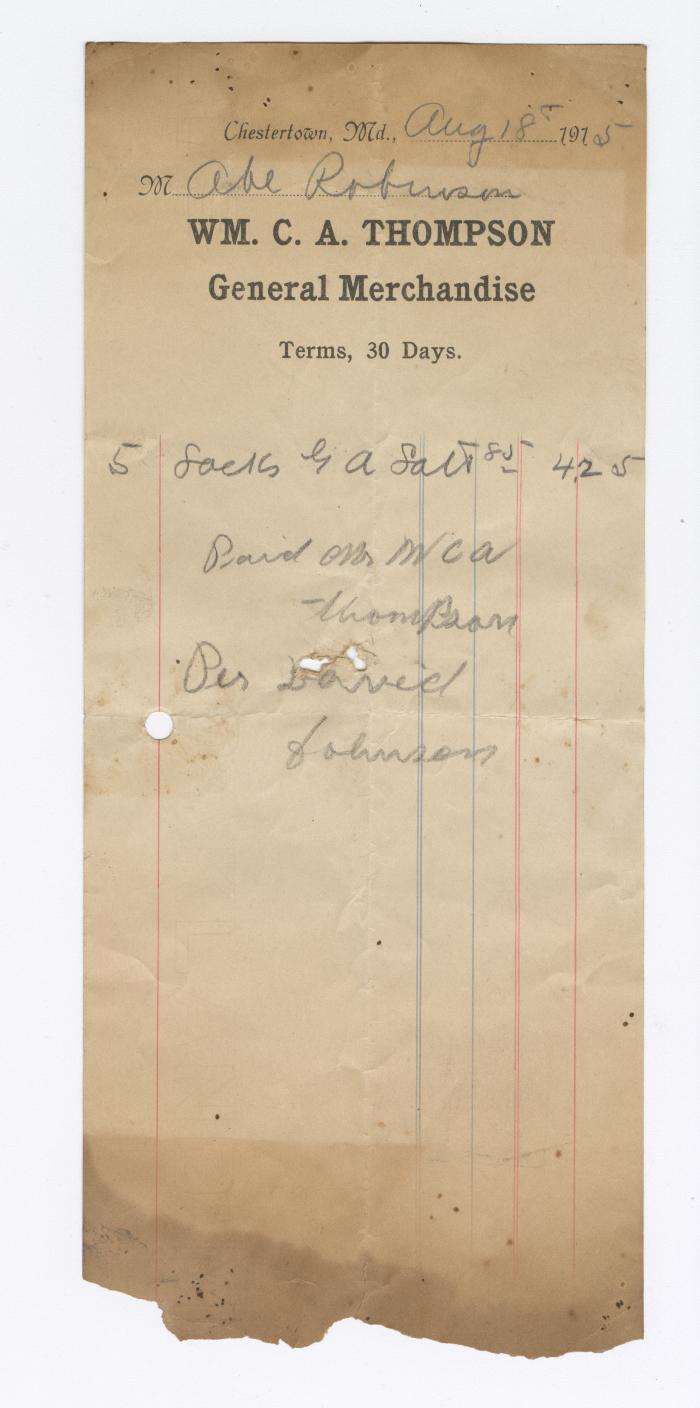 Chestertown, Md., Aug 18th 1915
M Abe Robinson
WM. C. A. THOMPSON
General Merchandise
Terms, 30 Days.
5 Sacks G A Salt 85 4.25
Paid W C A
Thompson
Per David
Johnson